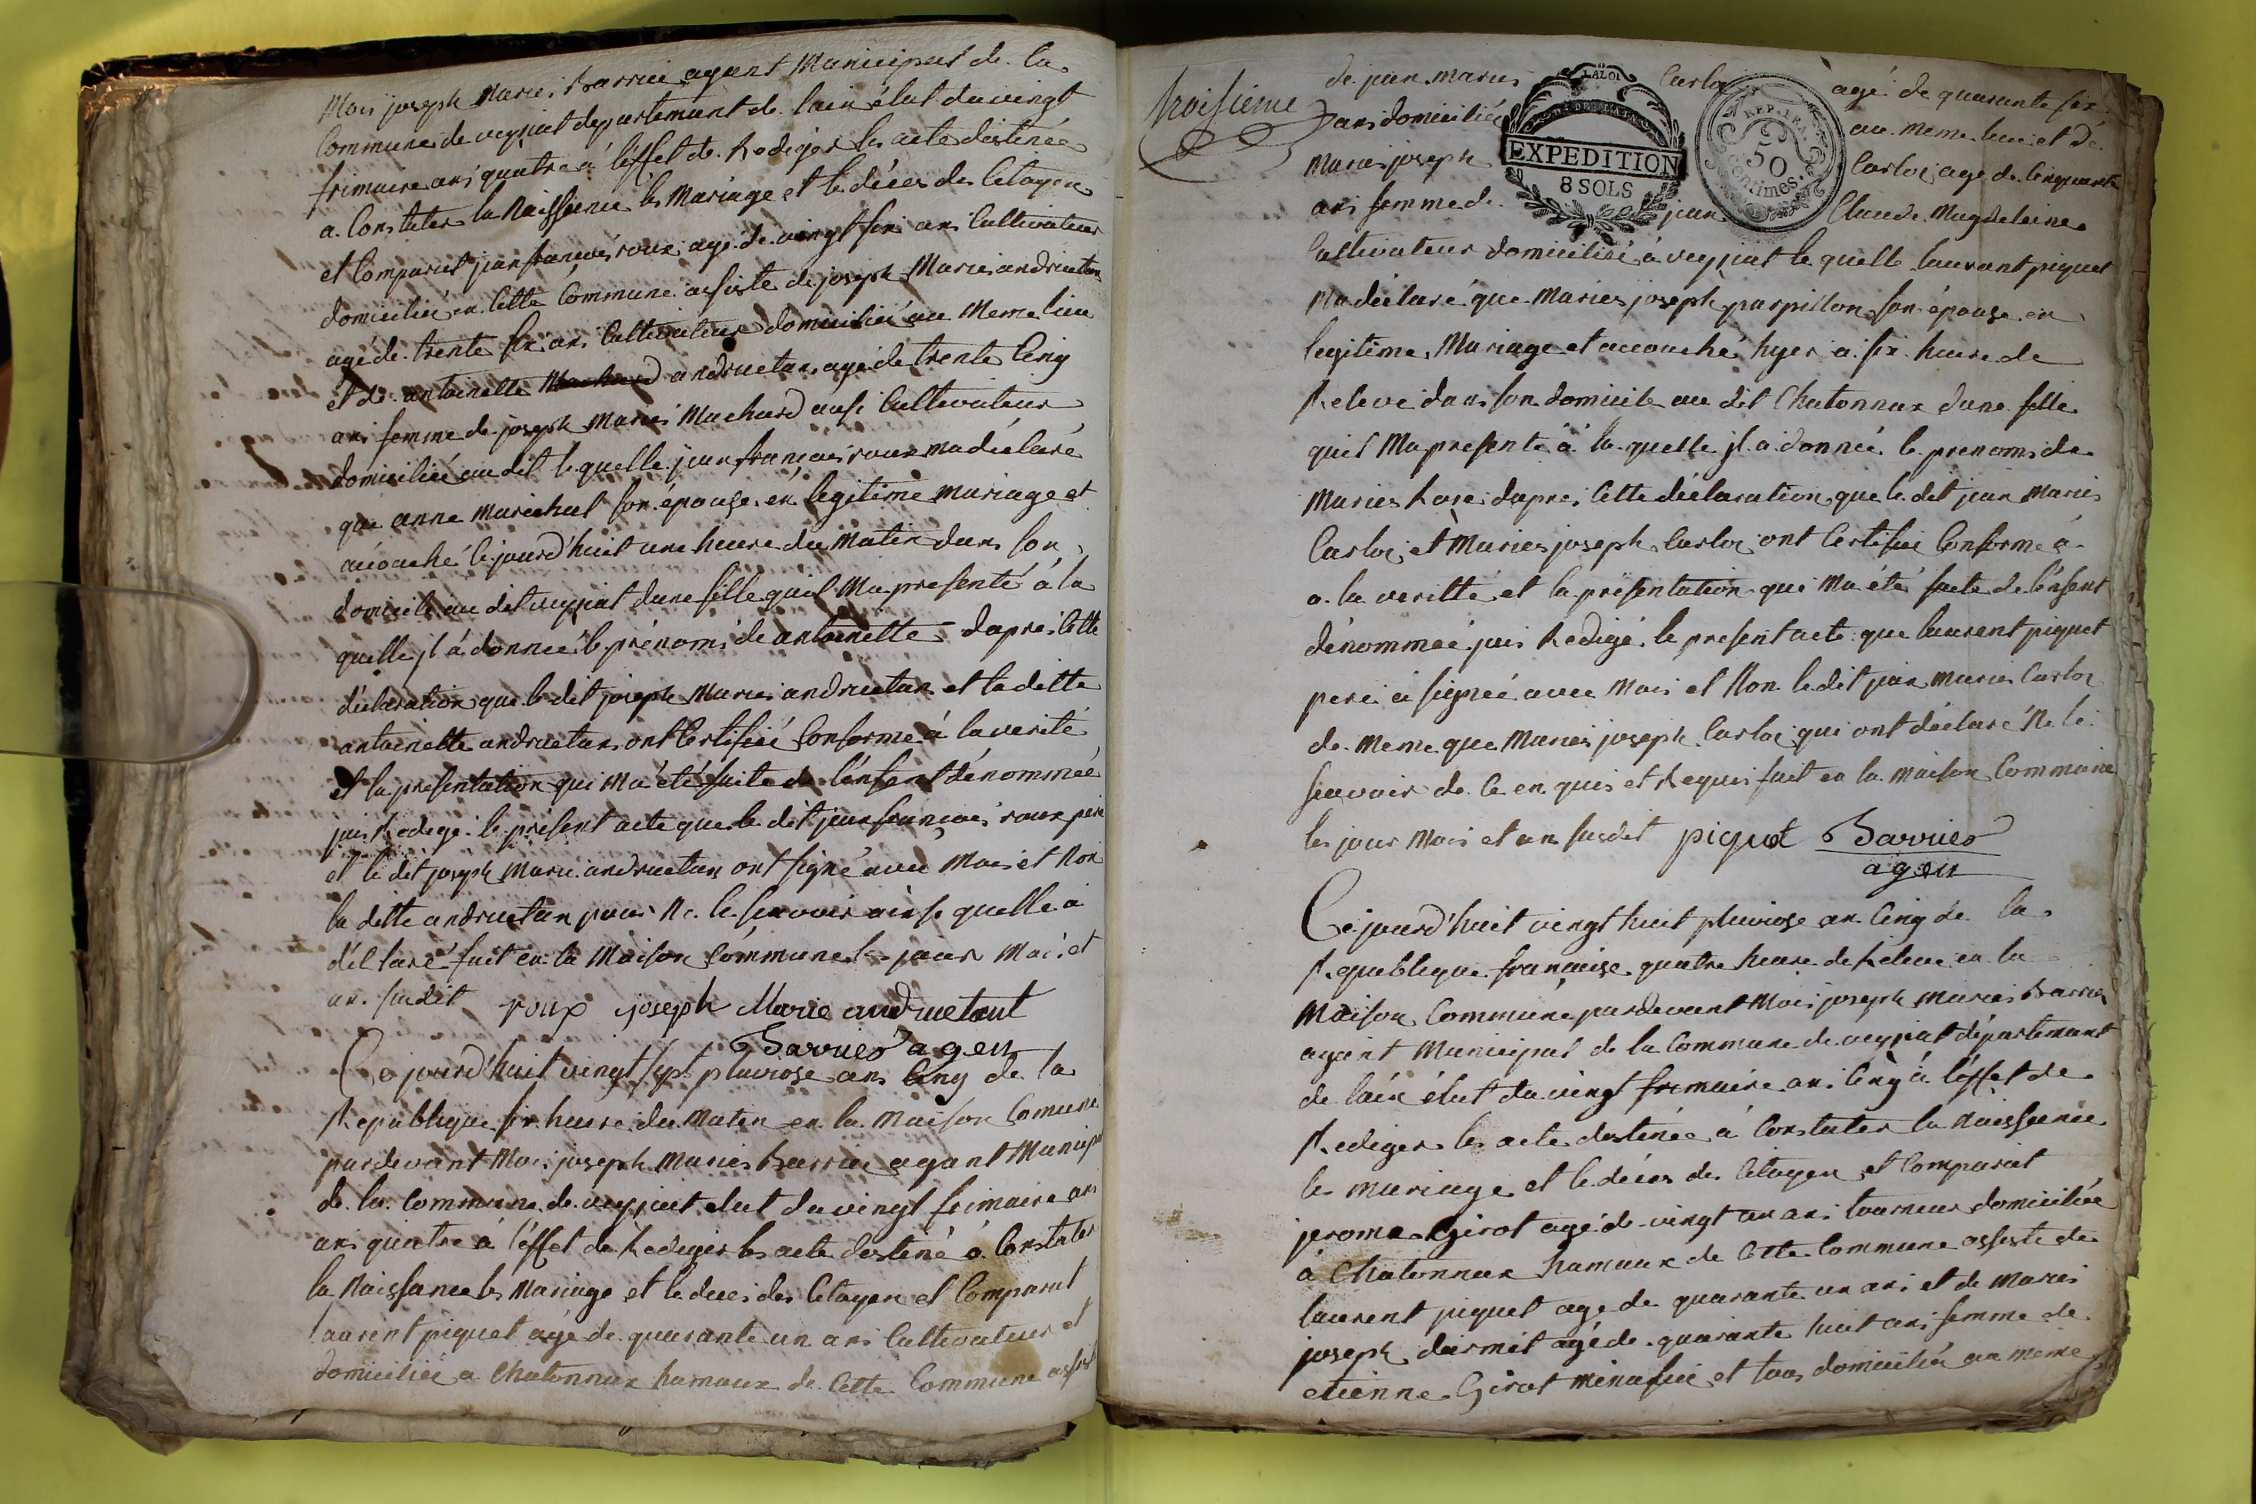 Moi joseph Maries Barrier agant Municipal de la
Commune de veyziat departemant de lain élut du vingt
frimaire ans quatre a l'éffet de Rediger les acte destinée
a Constater la Naissence les Mariage et le déces des Citoyen
et Comparut jean francois roux agé de vingt six ans Cultivateur
domicilié en Cette Commune assiste de joseph Maries andruetan
agé de trente six ans Cultivateur domicilié au Meme lieu
et de antoinette andruetan agé de trente Cinq
ans femme de joseph Maries Machard ausi Cultivateur
domicilié au dit le quelle jean francois roux ma déclaré
que anne marechal son épouse en legitime mariage et
acouché Ce jourd'huit une heure du Matin dans son
domicile au dit veyziat dune fille quil Ma presenté à la
quelle jl à donnée le prénoms de antoinette dapres Cette
déclaration que le dit joseph Maries andruetan et la ditte
antoinette andruetan ont Certifié Conforme à la verité
et la presentation qui Ma été faite de l'énfent dénommée
jai Redigé le présent acte que le dit jean francois roux pere
et le dit joseph Marie andruetan ont signé avec Moi et Non
la ditte andruetan pour Ne le scavoir ainse quelle a
déclaré fait en la Maison Commune les jour Moi et
an susdit roux joseph Marie andruetant
Barrier agen
Ce jourd'huit vingt sept pluviose ans Cinq de la
Republique six heure du Matin en la Maison Comune
pardevant Moi joseph Maries Barrier agant Municipal
de la Commune de veyziat elut du vingt frimaire ans
ans quatre à l'éffet de Rediger les acte destiné à Constater
la Naissance les Mariage et le deces des Citoyen et Comparut
laurent piquet agé de quarante un ans Cultivateur et
domiciliée a Chatonnax hamaux de Cette Commune assisté
troisieme
de jean maries Carloz agé de quarante six
ans domicilié au meme lieu et dé
Maries joseph Carloz age de Cinquante
ans femme de jean Claude Magdelaine
LA LOI
EXPEDITION
8 SOLS
REP. FRA.
50
Centimes.
Cultivateur domicilié à veyziat le quelle laurant piquet
Ma déclaré que Maries joseph parpillon son épouse en
legitime Mariage et acouché hyer a six heure de
Releve dans son domicile au dit Chatonnax dune fille
quil Ma presenté à la quelle jl a donnée le prenoms de
Maries Rose dapres Cette déclaration que le dit jean Maries
Carloz et Maries joseph Carloz ont Certifié Conforme à
a la veritté et la présentation qui Ma été faite de l'énfent
dénommeé jai Redigé le present acte que laurent piquet
pere a signeé avec Moi et Non le dit jean Maries Carloz
de meme que Maries joseph Carloz qui ont déclaré Ne le
scavoir de Ce en quis et Requi fait en la Maison Commune
les jour Moi et an susdit piquet Barrier
agen
Ce jourd'huit vingt huit pluviose an Cinq de la
Republique française quatre heure de Releve en la
Maison Commune pardevant Moi joseph Maries Barrier
agant Municipal de la Commune de veyziat département
de láin élut du vingt frimaire ans Cinq à l'éffet de
Rediger les acte destinée à Constater la Naissence
les mariage et le déces des Citoyen et Comparut
jerome Girot agé de vingt un ans tourneur domiciliée
à Chatonnax hamaux de Cette Commune assisté de
laurent piquet agé de quarante un ans et de Maries
joseph agé de quarante huit ans femme de
etienne Girot et tous domicilié au meme